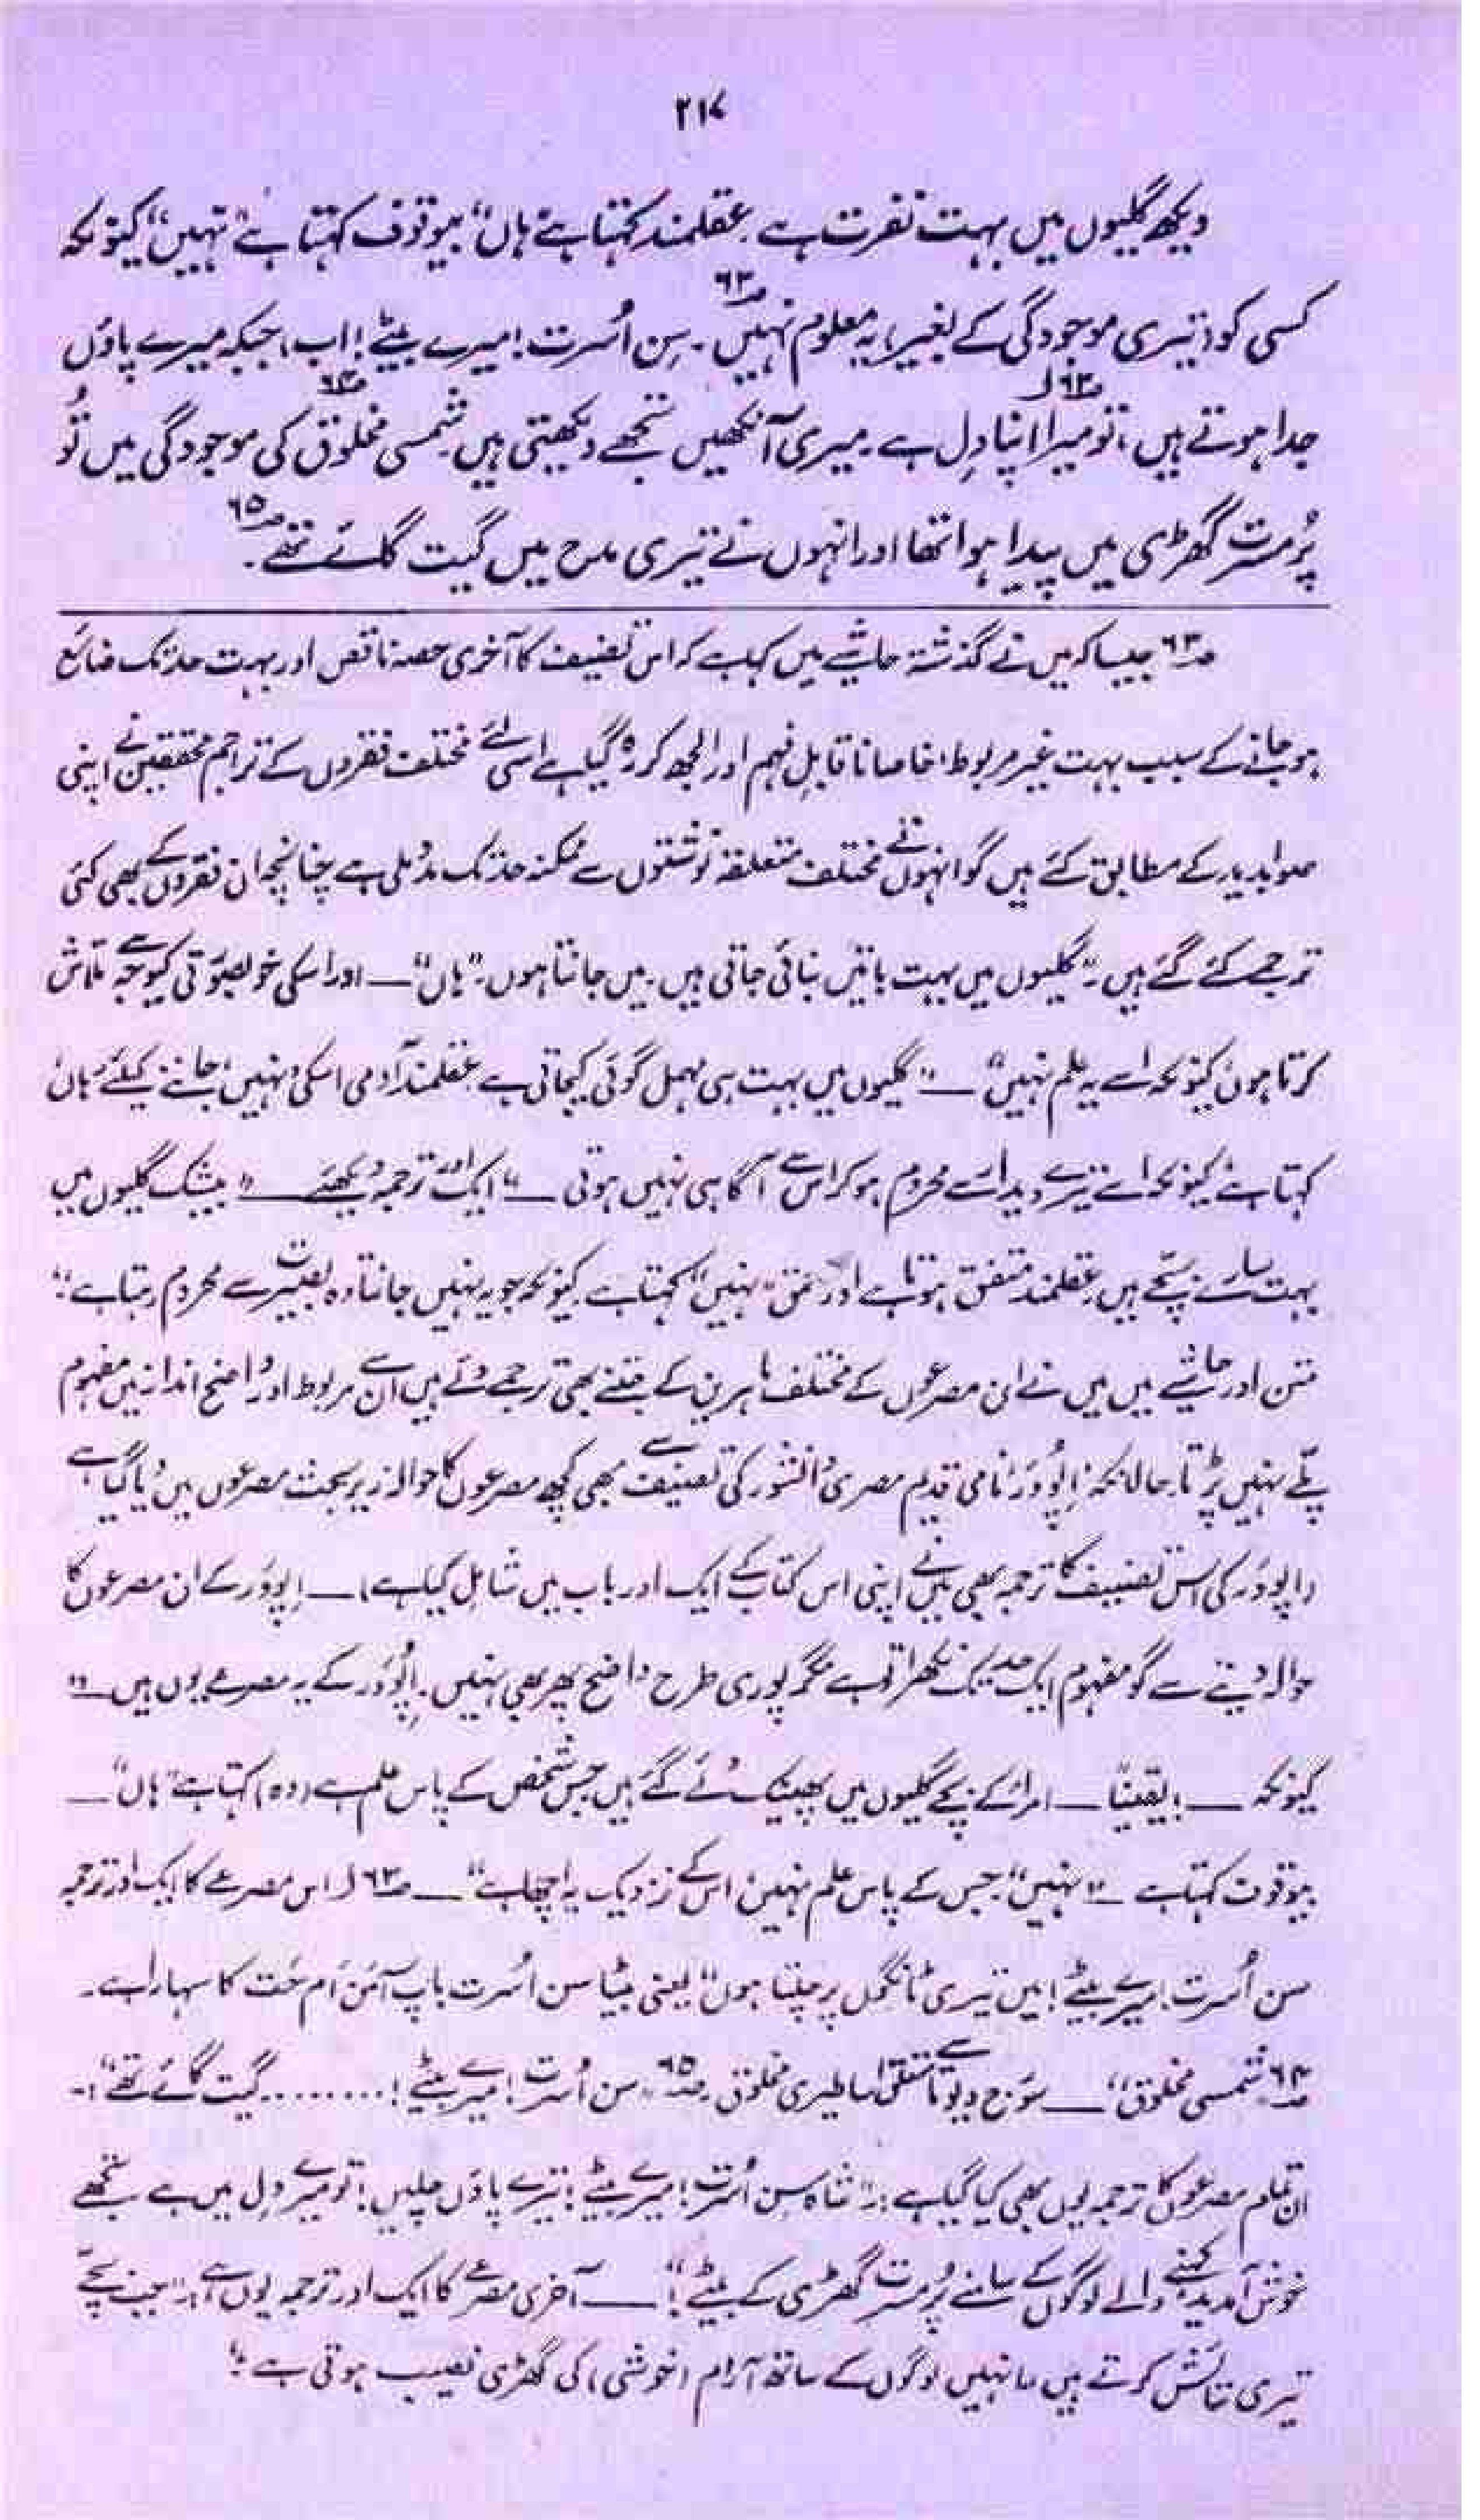 ۲۱۷
دیکھ گلیوں میں بہت نفرت ہے۔ عقلمند کہتا ہے ہاں“ بیوقوف کہتا ہے ”نہیں“ کیونکہ
کسی کو (تیری موجودگی کے بغیر) یہ معلوم نہیں ۶۳؎۔ سِن اُسرت! میرے بیٹے! اب، جبکہ میرے پاؤں
جدا ہوتے ہیں، تو میرا اپنا دِل ہے ۶۳؎ا۔ میری آنکھیں تجھے دیکھتی ہیں۔ شمسی مخلوق ۶۴؎ کی موجودگی میں تُو
پُرمسرت گھڑی میں پیدا ہوا تھا اور انہوں نے تیری مدح میں گیت گائے تھے ۶۵؎۔
۶۳؎ جیسا کہ میں نے گذشتہ حاشیے میں کہا ہے کہ اس تصنیف کا آخری حصہ ناقص اور بہت حد تک ضائع
ہو جانے کے سبب بہت غیر مربوط، خاصا ناقابلِ فہم اور الجھ کر رہ گیا ہے اسی لئے مختلف فقروں کے تراجم محققین نے اپنی
صوابدید کے مطابق کئے ہیں گو انہوں نے مختلف متعلقہ نوشتوں سے ممکنہ حد تک مدد لی ہے چنانچہ ان فقروں کے بھی کئی
ترجمے کئے گئے ہیں۔ ”گلیوں میں بہت باتیں بنائی جاتی ہیں۔ میں جانتا ہوں۔ ”ہاں“ — اور اسکی خوبصورتی کیوجہ سے تلاش
کرتا ہوں کیونکہ اسے یہ علم نہیں“ — ”گلیوں میں بہت ہی مہمل گوئی کیجاتی ہے عقلمند آدمی اسکی ’نہیں‘ جاننے کیلئے ’ہاں‘
کہتا ہے، کیونکہ اسے تیرے دیدار سے محروم ہو کر اس سے آگاہی نہیں ہوتی —“ ایک اور ترجمہ دیکھئے — ”بیشک گلیوں میں
بہت سارے بچے ہیں۔ عقلمند متفق ہوتا ہے اور احمق ”نہیں“ کہتا ہے۔ کیونکہ جو یہ نہیں جانتا وہ بصیرت سے محروم رہتا ہے“
متن اور حاشیے میں میں نے ان مصرعوں کے مختلف ماہرین کے جتنے بھی ترجمے دئے ہیں ان سے مربوط اور واضح انداز میں مفہوم
پلّے نہیں پڑتا۔ حالانکہ ’اِپُووَر‘ نامی قدیم مصری دانشور کی تصنیف سے بھی کچھ مصرعوں کا حوالہ زیر بحث مصرعوں میں دیا گیا ہے
(اپووَر کی اس تصنیف کا ترجمہ بھی میں نے اپنی اس کتاب کے ایک اور باب میں شامل کیا ہے)۔ — اِپووَر کے ان مصرعوں کا
حوالہ دینے سے گو مفہوم ایک حد تک نکھر آتا ہے مگر پوری طرح واضح پھر بھی نہیں۔ اِپُووَر کے یہ مصرعے یوں ہیں — ”
کیونکہ — ! یقیناً — امراء کے بچے گلیوں میں پھینک دئے گئے ہیں جس شخص کے پاس علم ہے (وہ) کہتا ہے ”ہاں“ —
بیوقوف کہتا ہے — ”نہیں“۔ جس کے پاس علم نہیں اس کے نزدیک یہ اچھا ہے“ — ۶۳؎ا اس مصرعے کا ایک اور ترجمہ
سن اُسرت! میرے بیٹے! میں تیری ٹانگوں پر چلتا ہوں“ یعنی بیٹا سن اُسرت باپ آمَن اَم حَت کا سہارا ہے۔
۶۴؎ ”شمسی مخلوق“ — سورج دیوتا سے متعلق اساطیری مخلوق۔ ۶۵؎ ”سن اُسرت! میرے بیٹے! ........ گیت گائے تھے“:-
ان تمام مصرعوں کا ترجمہ یوں بھی کیا گیا ہے:۔ ”شاہ سِن اُسرت! میرے بیٹے! تیرے پاؤں چلیں! تو میرے دِل میں ہے۔ تجھے
خوش آمدید کہنے والے لوگوں کے سامنے پُرمسرت گھڑی کے بیٹے!“ — آخری مصرعے کا ایک اور ترجمہ یوں ہے:۔ ”جب بچے
تیری ستائش کرتے ہیں۔ انہیں لوگوں کے ساتھ آرام (خوشی) کی گھڑی نصیب ہوتی ہے“